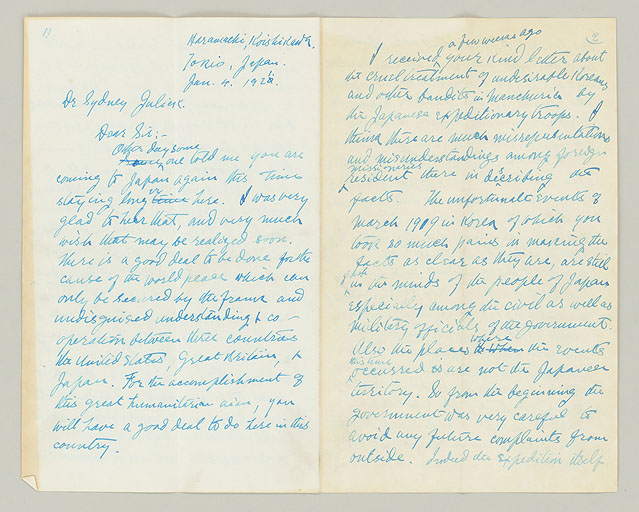 1)
Haramachi, Koishikawa,
Tokio, Japan.
Jan. 4. 1921.
Dr Sydney Julick.
Dear Sir:-
Other day some
one told me you are
coming to Japan again this time
staying longer here. I was very
glad to hear that, and very much
wish that may be realized soon.
There is a good deal to be done for the
cause of the world peace which can
only be secured by the frank and
undisguised understanding & co-
operation between three countries
the United States, Great Britain, &
Japan. For the accomplishment of
this great humanitarian aim, you
will have a good deal to do here in this
country.
2
a few weeks ago
I received your kind letter about
the cruel treatment of undesirable Koreans
and other bandits in Manchuria by
the Japanese expeditionary troops. I
think there are much misrepresentations
and misunderstandings among foreign
missionaries
resident there in describing the
facts. The unfortunate events of
March 1919 in Korea of which you
took so much pains in making the
facts as clear as they are, are still
in the minds of the people of Japan
especially among the civil as well as
military officials of the government.
Also the places where the events
this time
occurred are not the Japanese
territory. So from the beginning the
government was very careful to
avoid any future complaints from
outside. Indeed the expedition itself